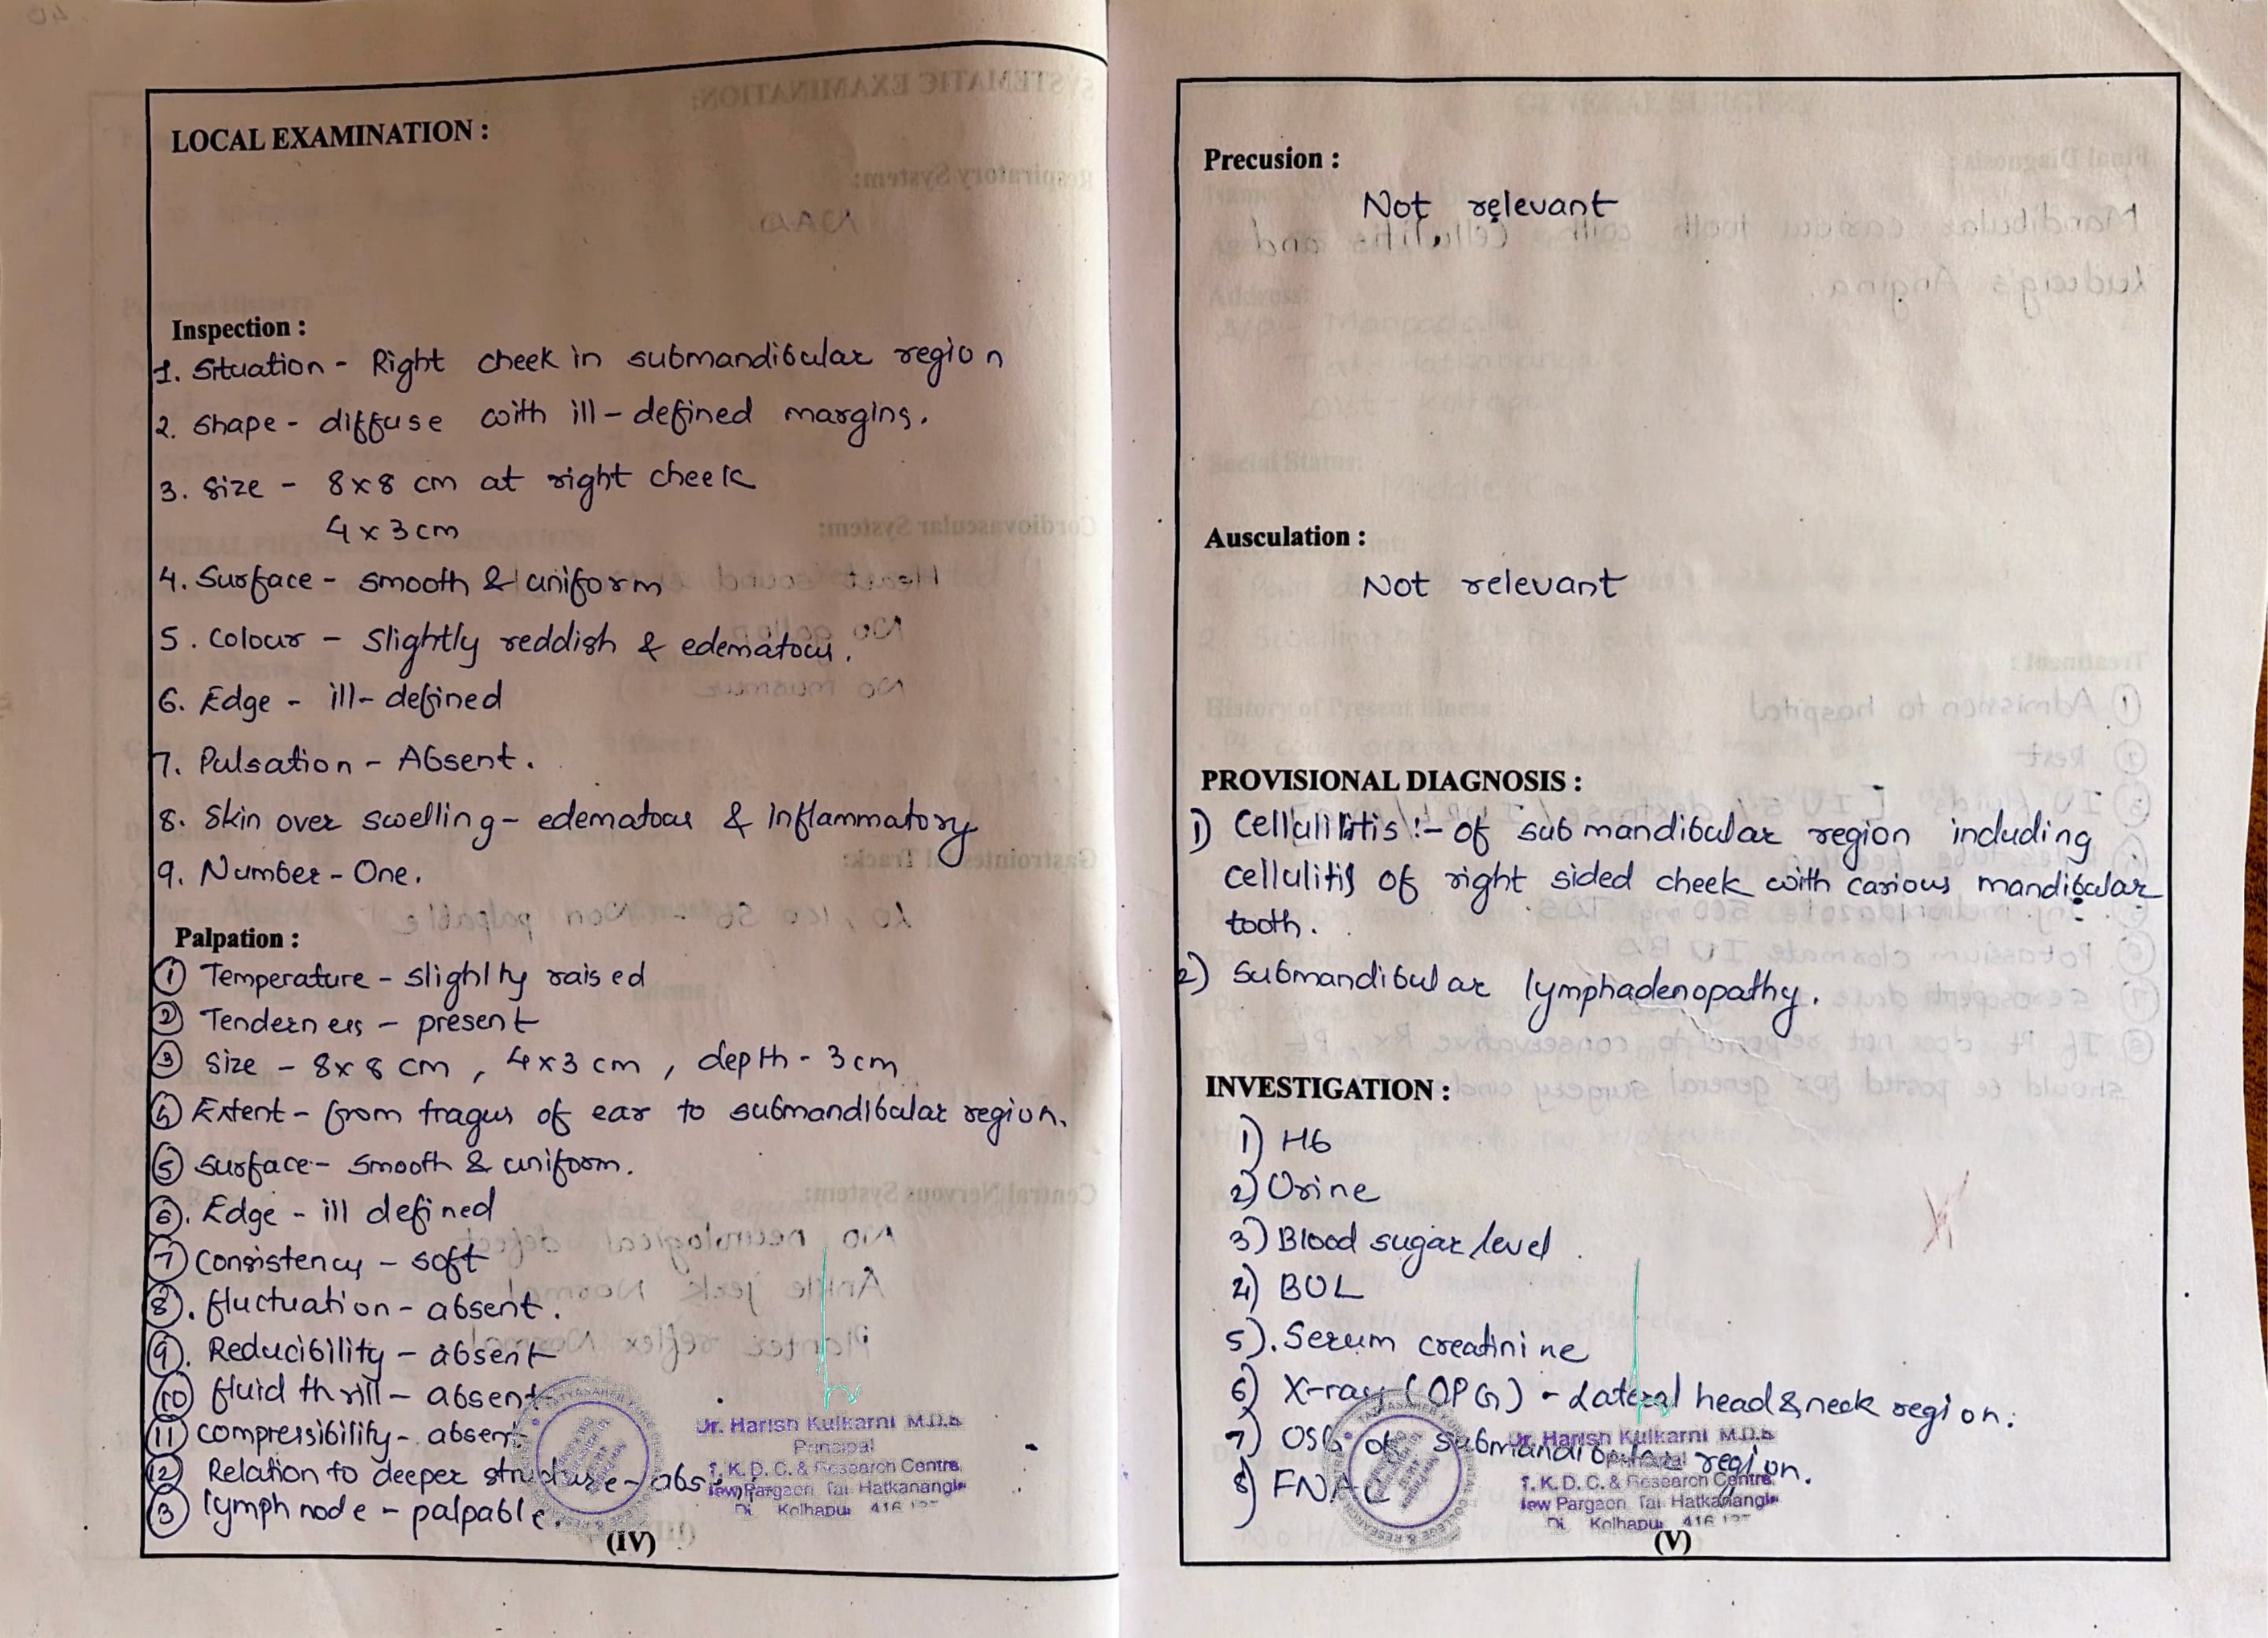 LOCAL EXAMINATION :
Inspection :
1. Situation - Right cheek in submandibular region
2. Shape - diffuse with ill-defined margins.
3. Size - 8x8 cm at right cheek
4 x 3 cm
4. Surface - smooth & uniform
5. Colour - Slightly reddish & edematous.
6. Edge - ill-defined
7. Pulsation - Absent.
8. Skin over swelling - edematous & Inflammatory
9. Number - One.
Palpation :
① Temperature - slighlty raised
② Tenderness - present
③ Size - 8x8 cm, 4x3 cm, depth - 3 cm
④ Extent - from tragus of ear to submandibular region.
⑤ Surface - smooth & uniform.
⑥. Edge - ill defined
⑦ Consistency - soft
⑧. fluctuation - absent.
⑨. Reducibility - absent
⑩ fluid thrill - absent
⑪ compressibility - absent
⑫ Relation to deeper structure - abs
⑬ lymph node - palpable.
Dr. Harish Kulkarni M.D.S
Principal
T. K. D. C. & Research Centre,
New Pargaon, Tal- Hatkanangle
Di. Kolhapur 416 137
(IV)
Precusion :
Not relevant
Ausculation :
Not relevant
PROVISIONAL DIAGNOSIS :
1) Cellulitis :- of submandibular region including
cellulitis of right sided cheek with carious mandibular
tooth.
2) Submandibular lymphadenopathy.
INVESTIGATION :
1) Hb
2) Urine
3) Blood sugar level
4) BUL
5). Serum creatinine
6) X-ray (OPG) - Lateral head & neck region.
7) USG of submandibular region.
8) FNAC
Dr. Harish Kulkarni M.D.S
Principal
T. K. D. C. & Research Centre
New Pargaon, Tal- Hatkanangle
Di. Kolhapur 416 137
(V)